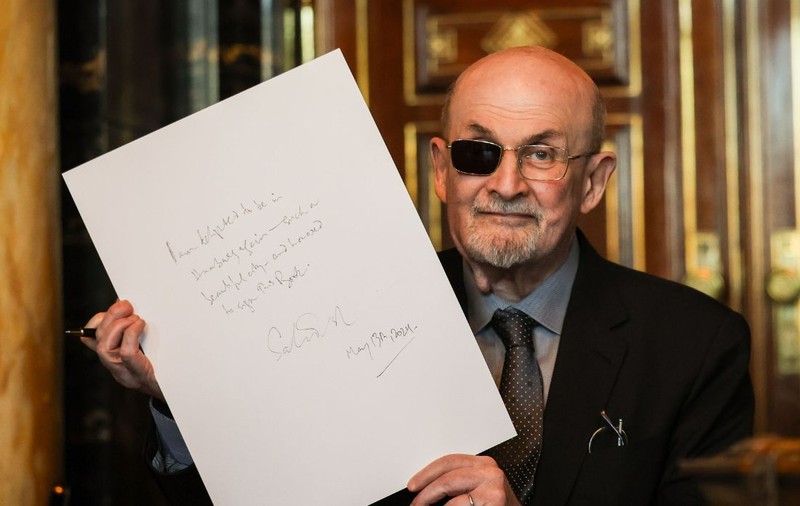 I am delighted to be in
Hamburg again — such a
beautiful city — and honored
to sign this Book.
May 13th, 2024.